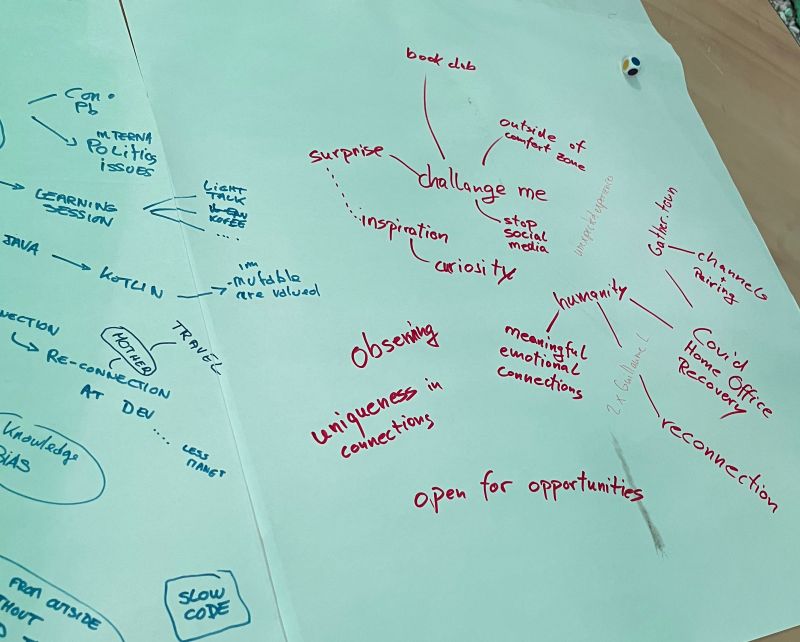 Con
Pb
INTERNA
POLITICS
ISSUES
LEARNING
SESSION
LIGHT
TALK
KOFEE
....
JAVA
KOTLIN
imm
-mutable
are valued
NECTION
RE-CONNECTION
MOTHER
TRAVEL
AT DEV ....
LESS
Knowledge
BIAS
FROM OUTSIDE
THOUT
SLOW
CODE
book club
outside of
comfort zone
surprise
challange me
stop
social
media
inspiration
curiosity
unexpected experiences
Gather.town
channels
+
Pairing
humanity
meaningful
emotional
connections
2x Guillaume L
Covid
Home Office
Recovery
reconnection
Observing
uniqueness in
connections
open for opportunities